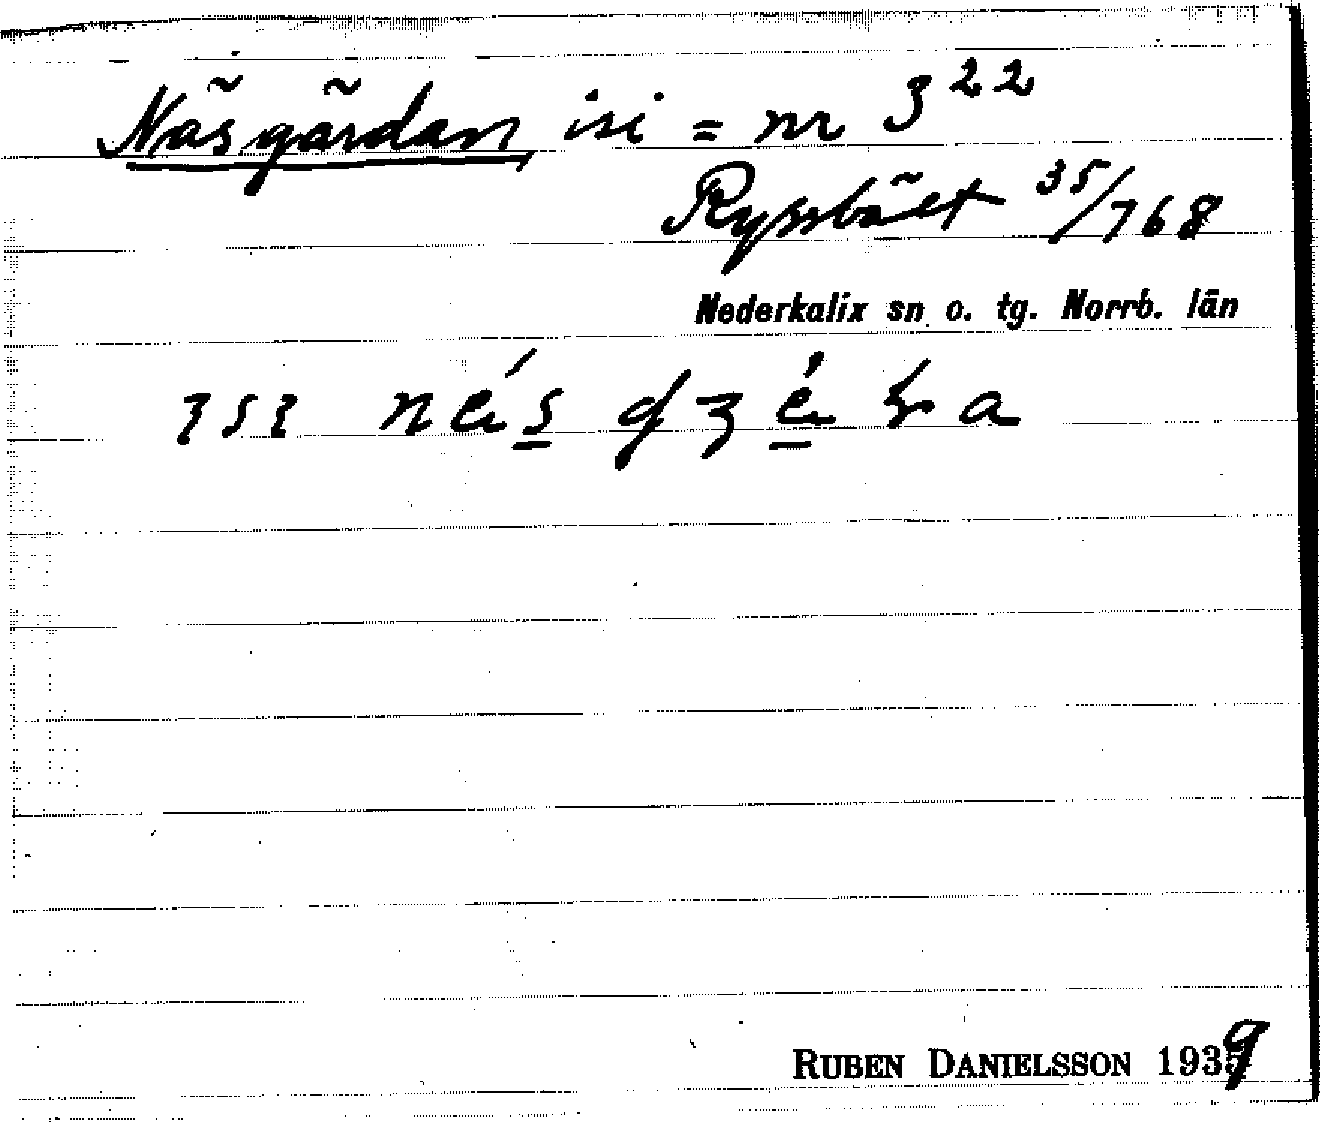 Näsgärdan, isi = nr 3²²
Ryssbält 35/768
Nederkalix sn o. tg. Norrb. län
RUBEN DANIELSSON 1939